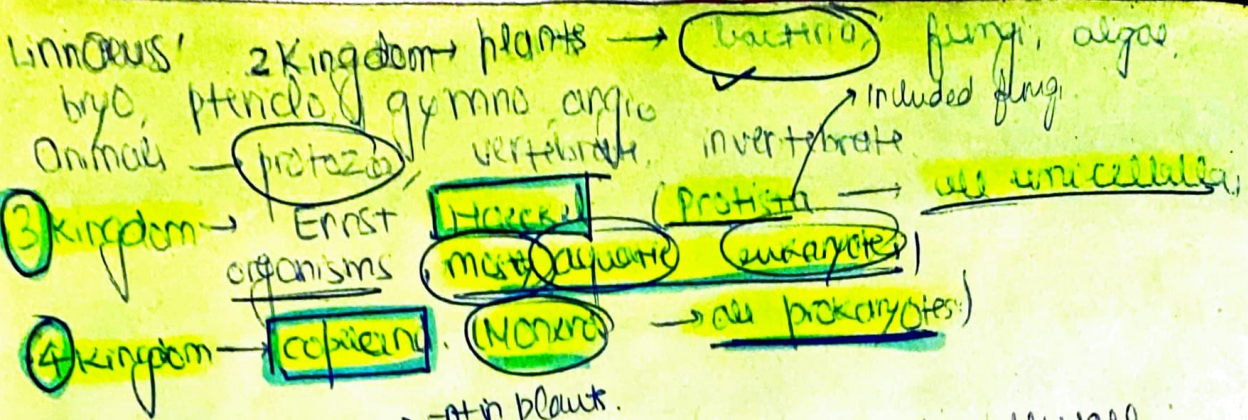 Linnaeus' 2 Kingdom → plants → bacteria, fungi, algae,
bryo, pterido, gymno, angio
→ included fungi
Animals — protozoa, vertebrate, invertebrate
③ kingdom → Ernst Haeckel (Protista → all unicellular,
organisms mostly aquatic eukaryotes)
④ kingdom → copeland. (Monera → all prokaryotes)
in plants.